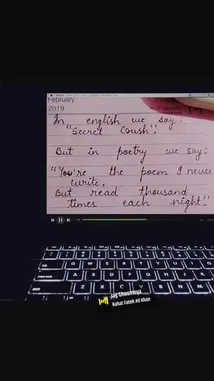 February
2019
In english we say :
"Secret Crush".
But in poetry we say:
"You're the poem I never
write,
But read thousand
times each night".
Rahat Fateh Ali Khan